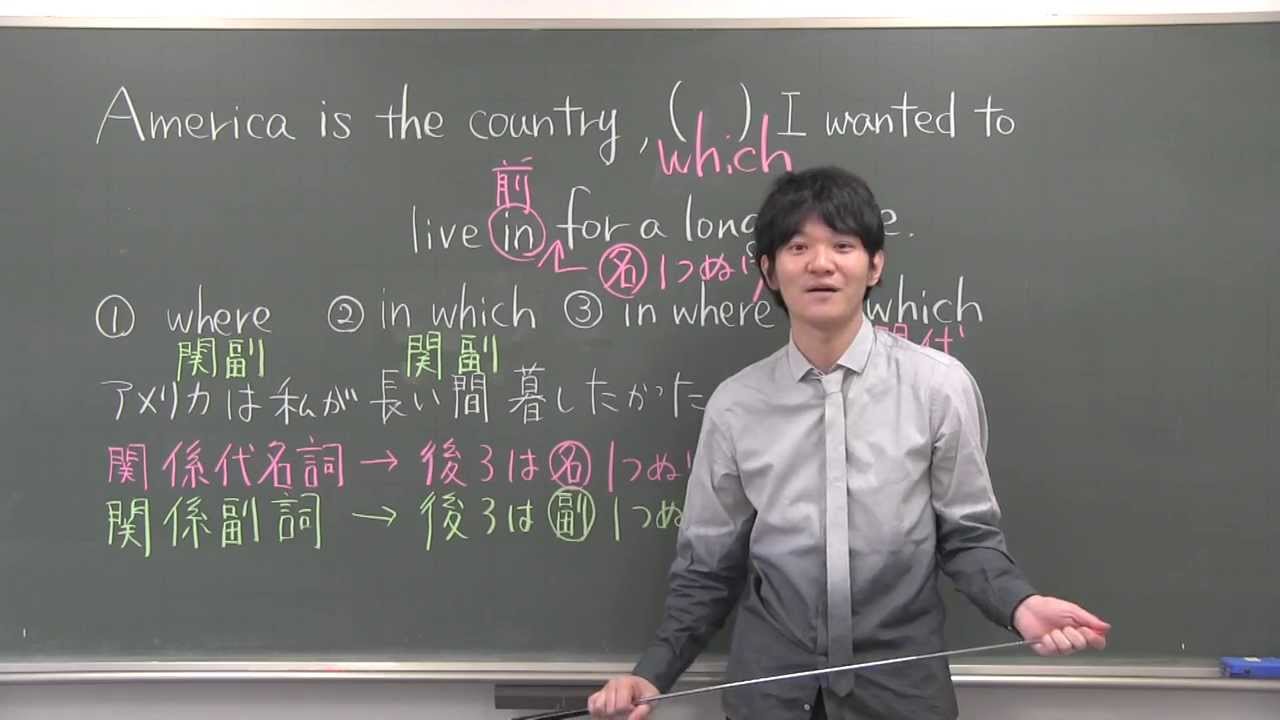 America is the country, ( ) I wanted to
which
前
live in for a long e.
名 1つぬけ
① where ② in which ③ in where which
関副 関副 関代
アメリカは私が長い間暮したかった
関係代名詞 → 後ろは名1つぬけ
関係副詞 → 後ろは副1つぬ